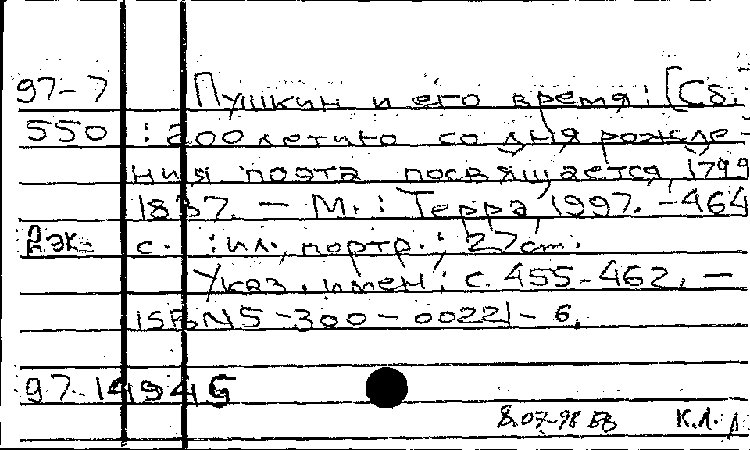 97-7 Пушкин и его время: [Сб.
550 : 200летию со дня рожде-
ния поэта посвящается, 1799
1837. - М.: Терра, 1997. - 464
с. : ил., портр.; 27 cm.
Указ. имен: с. 455-462. -
ISBN 5-300-00221-6.
97-14945
8.07-98 К.Л.